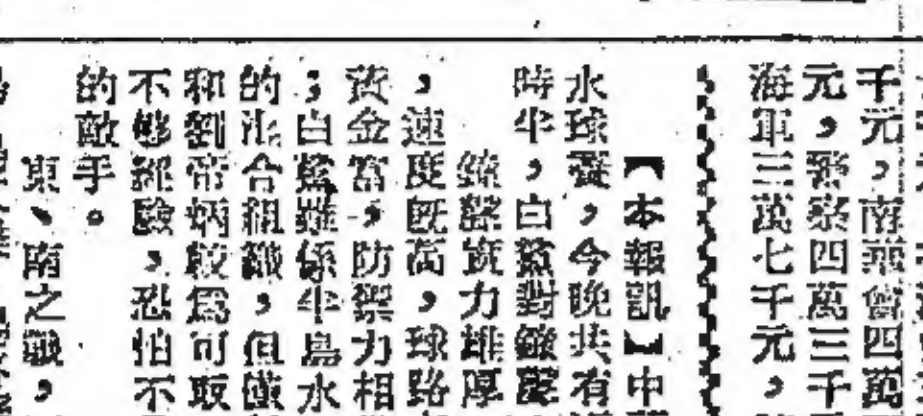 千元，南華會四萬
元，警察四萬三千
海軍三萬七千元，
【本報訊】中
水球賽，今晚共有
時半，白鯊對鐘聲
鐘聲實力雄厚
，速度既高，球路
黃金富，防禦力相
；白鯊雖係半島水
的混合組織，但僅
和劉帝炳較為可取
不够經驗，恐怕不
的敵手。
東、南之戰，